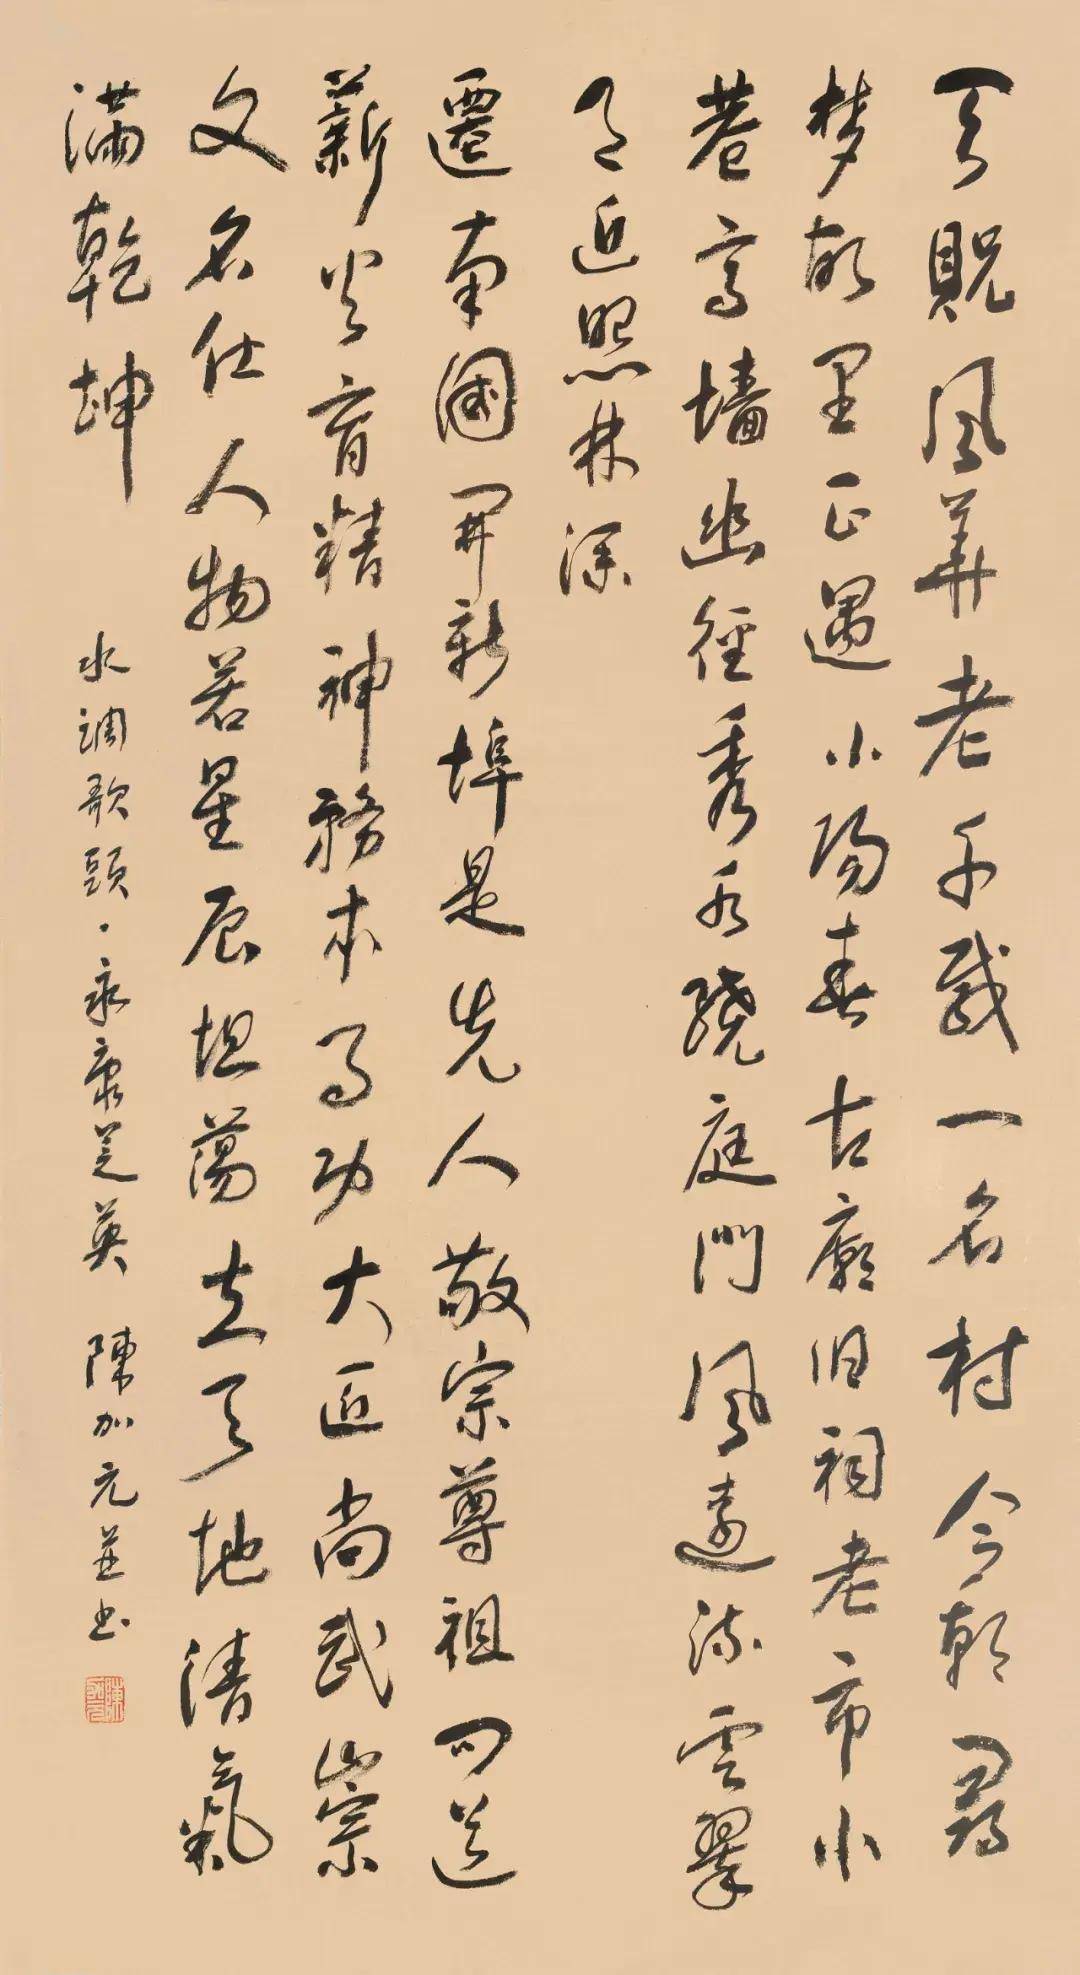 天貺風華老千載一名村今朝尋
梦故里正遇小陽春古廟旧祠老市小
巷高墻幽徑秀水繞庭門風遠流雲翠
月近照林深
遷南國開新埠是先人敬宗尊祖問道
薪火育精神務本事功大匠尚武崇
文名仕人物若星辰坦蕩立天地清氣
满乾坤
水調歌頭·永康芝英 陳加元並书